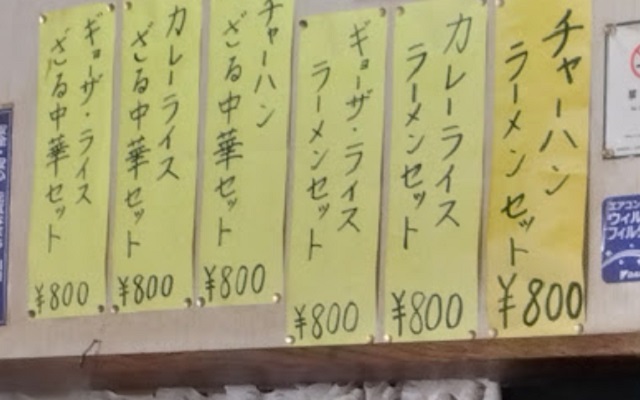 チャーハン
ラーメンセット
¥800
カレーライス
ラーメンセット
¥800
ギョーザ・ライス
ラーメンセット
¥800
チャーハン
ざる中華セット
¥800
カレーライス
ざる中華セット
¥800
ギョーザ・ライス
ざる中華セット
¥800
エアコン